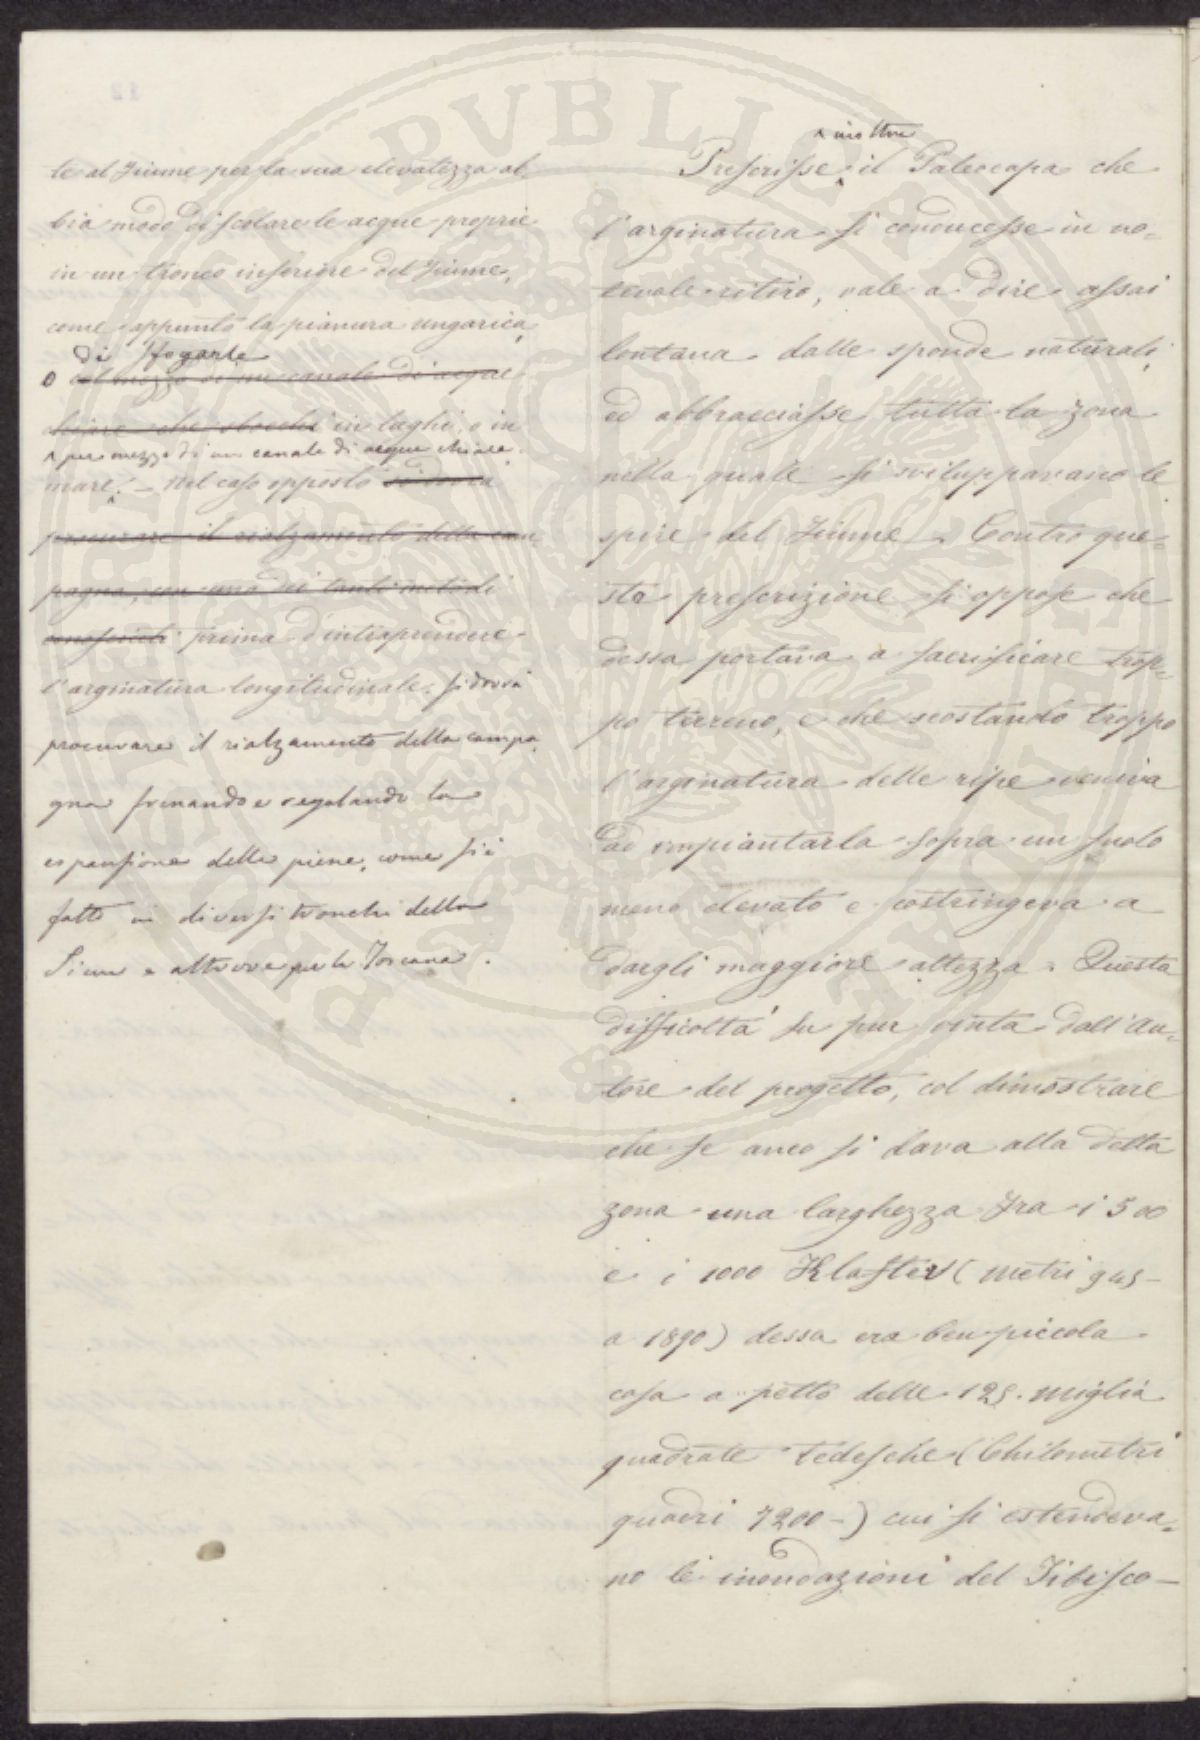 te al fiume per la sua elevatezza ab
bia modo di scolare le acque proprie
in un tronco inferiore del fiume,
come appunto la pianura ungarica,
di sfogarle
o col mezzo di un canale di acque
chiare che sbocchi in laghi, o in
per mezzo di un canale di acque chiare.
mare. – Nel caso opposto si dovrà
procurare il rialzamento della cam-
pagna, con uno dei tanti metodi
conosciuti prima d'intraprendere
l'arginatura longitudinale, si dovrà
procurare il rialzamento della campa
gna frenando e regolando la
espansione delle piene, come si è
fatto in diversi tronchi della
Sieve e altrove per la Toscana.
inoltre
Prescrisse il Paleocapa che
l'arginatura si conducesse in no-
tevole ritiro, vale a dire assai
lontana dalle sponde naturali,
ed abbracciasse tutta la zona
nella quale si sviluppavano le
spire del fiume. Contro que-
sta prescrizione si oppose che
dessa portava a sacrificare trop-
po terreno, e che scostando troppo
l'arginatura delle ripe veniva
ad impiantarla sopra un suolo
meno elevato e costringeva a
dargli maggiore altezza. Questa
difficoltà fu pur vinta dall'Au-
tore del progetto, col dimostrare
che se anco si dava alla detta
zona una larghezza fra i 500
e i 1000 Klafter (metri 945-
a 1890) dessa era ben piccola
cosa a petto delle 125. miglia
quadrate tedesche (Chilometri
quadri 7200-) cui si estendeva-
no le inondazioni del Tibisco –